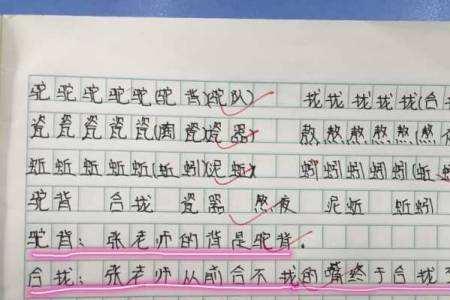 驼 驼 驼 驼 驼(驼背)(驼队) 拢 拢 拢 拢 拢(合
瓷 瓷 瓷 瓷 瓷(陶瓷)(瓷器) 熬 熬 熬 熬 熬(熬
蚯 蚯 蚯 蚯 蚯(蚯蚓)(泥蚯) 蚓 蚓 蚓 蚓 蚓(蚯
驼背 合拢 瓷器 熬夜 泥蚯 蚯蚓
驼背:张老师的背是驼背。
合拢:张老师从前合不拢的嘴终于合拢